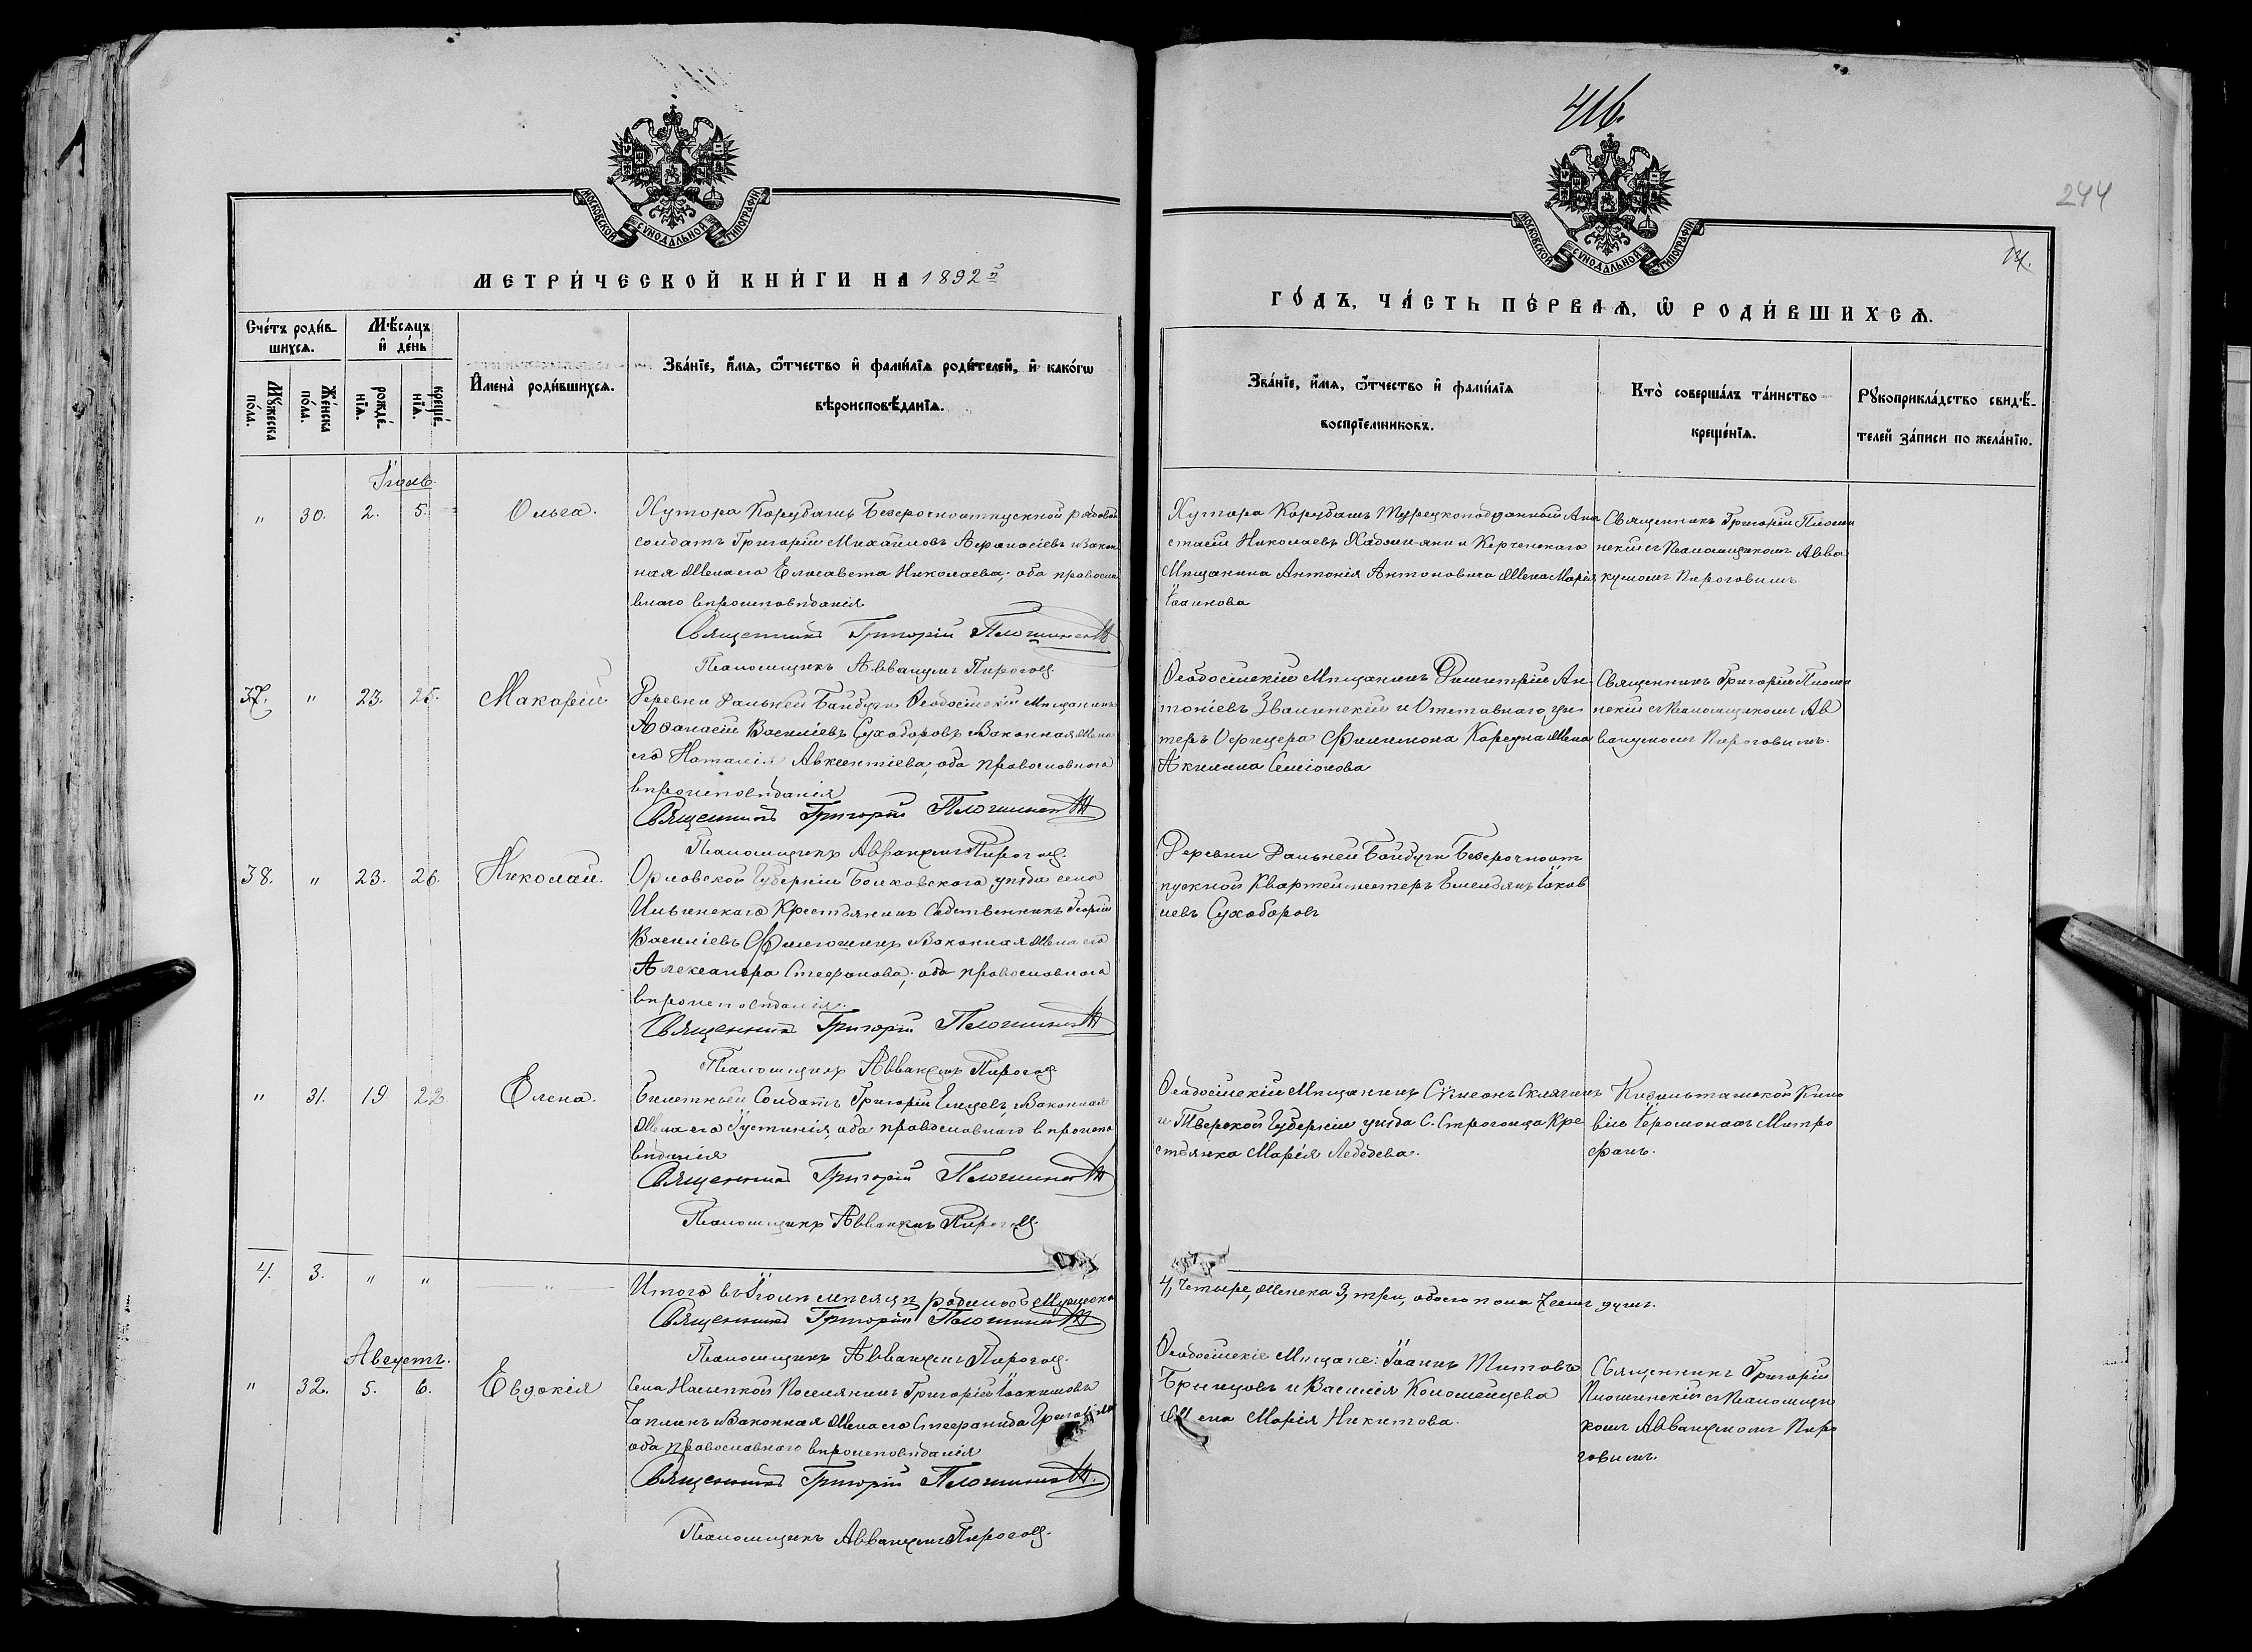 416.
244
МОСКОВСКОЙ СѴНОДАЛЬНОЙ ТИПОГРАФІИ
МОСКОВСКОЙ СѴНОДАЛЬНОЙ ТИПОГРАФІИ
МЕТРИ́ЧЕСКОЙ КНИ́ГИ НА 1892й
ГО́ДЪ, ЧА́СТЬ ПЕ́РВАѦ, Ѡ҆ РОДИ́ВШИХСѦ.
Сче́тъ роди́вшихсѧ.
Мѣ́сѧцъ и҆ де́нь
И҆мена̀ роди́вшихсѧ.
Зва́нїе, и҆́мѧ, ѻ҆́тчество и҆ фами́лїѧ роди́телей, и҆ како́гѡ
вѣроисповѣ́данїѧ.
Мꙋ́жеска по́ла.
Же́нска по́ла.
рожде́нїѧ.
креще́нїѧ.
Зва́нїе, и҆́мѧ, ѻ҆́тчество и҆ фами́лїѧ
воспрїе́мниковъ.
Кто̀ соверша́лъ та́инство
креще́нїѧ.
Рꙋкоприкла́дство свидѣ́-
телей за́писи по жела́нїю.
Іюль.
" 30. 2. 5. Ольга.
Хутора Корубашъ Безсрочноотпускной рядовой
солдатъ Григорій Михайловъ Афанасіевъ и закон
ная жена его Елисавета Николаева; оба правосла
внаго вѣроисповѣданія
Священникъ Григорій Плошинскій
Псаломщикъ Аввакумъ Пироговъ.
Хутора Корубашъ Турецкоподданный Ана
стасій Николаевъ Хаджи-яни и Керченскаго
Мѣщанина Антонія Антоновича жена Марія
Іоаннова
Священникъ Григорій Плошин
скій съ Псаломщикомъ Авва
кумомъ Пироговымъ
37. " 23. 25. Макарій
Деревни Дальней Байбуги Ѳеодосійскій Мѣщанинъ
Аѳанасій Василіевъ Сухоборовъ и законная жена
его Наталія Авксентіева, оба православнаго
вѣроисповѣданія
Священникъ Григорій Плошинскій
Псаломщикъ Аввакумъ Пироговъ.
Ѳеодосійскій Мѣщанинъ Димитрій Ан-
тоніевъ Званинскій и Отставного ун-
теръ Офицера Филимона Корсуна жена
Акилина Семіонова
Священникъ Григорій Плошин
скій съ Псаломщикомъ Ав
вакумомъ Пироговымъ.
38. " 23. 26. Николай.
Орловской Губерніи Болховскаго уѣзда села
Ильинскаго Крестьянинъ Собственникъ Георгій
Василіевъ и законная жена его
Александра Стефанова; оба православнаго
вѣроисповѣданія.
Священникъ Григорій Плошинскій
Псаломщикъ Аввакумъ Пироговъ
Деревни Дальней Байбуги Безсрочноот
пускной Квартермистеръ Емельянъ Іаков
левъ Сухоборовъ
" 31. 19 22 Елена.
Билетный Солдатъ Григорій Елцевъ, и законная
жена его Іустинія, оба православнаго вѣроиспо
вѣданія
Священникъ Григорій Плошинскій
Псаломщикъ Аввакумъ Пироговъ.
Ѳеодосійскій Мѣщанинъ Сѵмеонъ
и Тверской Губерніи уѣзда С. Кре
стьянка Марія Лебедева.
Кизильташской Кино
віи Іеромонахъ Митро
фанъ.
4. 3. " " "
Итого въ Іюлѣ мѣсяцѣ родилось Мужеска
4, четыре, женска 3, три, обоего пола 7 семь душъ.
Священникъ Григорій Плошинскій
Псаломщикъ Аввакумъ Пироговъ.
Августъ.
" 32. 5. 6. Евдокія
Села Насыпкой Поселянинъ Григорій Іоакимовъ
Чаплинъ и законная жена его Стефанида
оба православнаго вѣроисповѣданія
Священникъ Григорій Плошинскій.
Псаломщикъ Аввакумъ Пироговъ.
Ѳеодосійскіе Мѣщане: Іоаннъ Титовъ
Брынцовъ и Василія Коломейцева
жена Марія Никитова.
Священникъ Григорій
Плошинскій съ Псаломщи
комъ Аввакумомъ Пиро
говымъ.